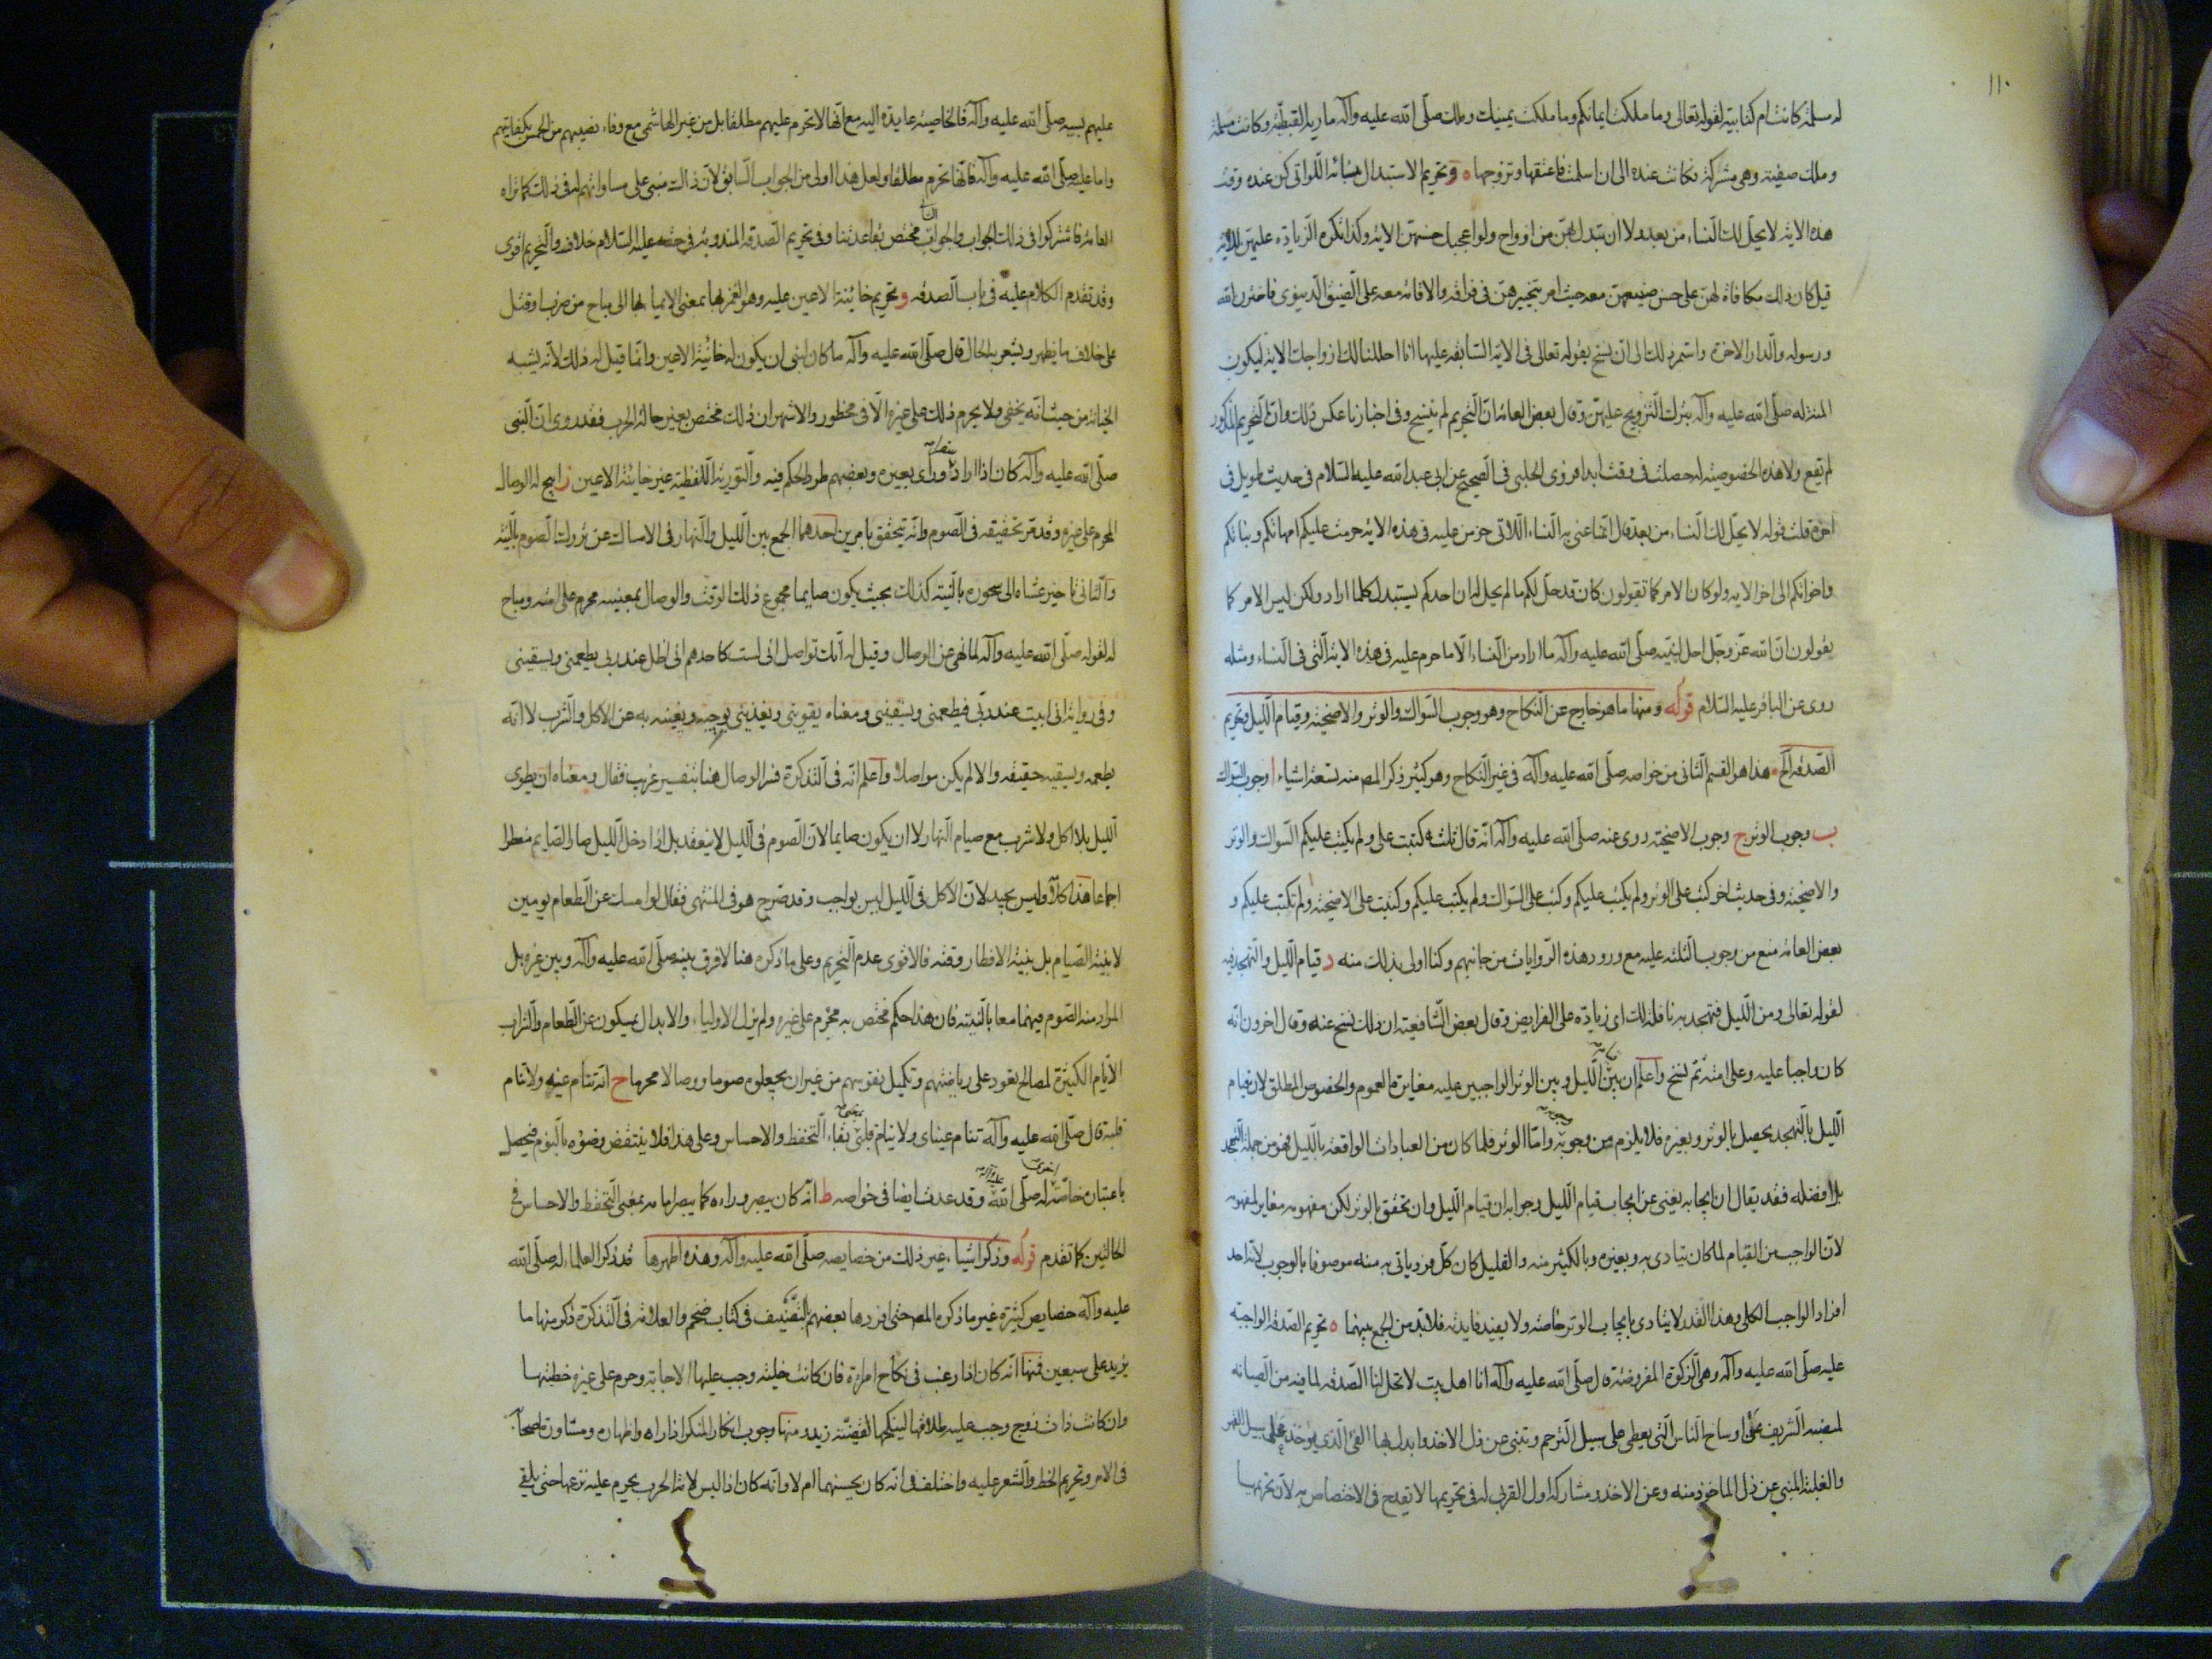 ١١٠
له مسلمة كانت ام كتابية لقوله تعالى وما ملكت ايمانكم وما ملكت يمينك وملك صلّى الله عليه وآله مارية القبطية وكانت مسلمة
وملك صفية وهى مشركة فكانت عنده الى ان اسلمت فاعتقها وتزوجها ٥ و تحريم الاستبدال بنسائه اللّواتى كن عنده وقت
هذه الاية لا يحلّ لك النساء من بعد ولا ان تبدل بهنّ من ازواج ولو اعجبك حسنهن الاية وكذا نكره الزيادة عليهن للاية
قيل كان ذلك مكافاة لهن على حسن صنيعهنّ معه حيث امر بتخييرهن فى فراقه والاقامة معه على الضيق الدنيوى فاخترن الله
ورسوله والدار الاخرة واستمر ذلك الى ان نسخ بقوله تعالى فى الاية السّابقة عليها انا احللنا لك ازواجك الاية ليكون
المنّة له صلّى الله عليه وآله بترك التّزويج عليهن وقال بعض العامّة انّ التّحريم لم ينسخ وفى اخبارنا عكس ذلك وانّ التّحريم المذكور
لم يقع ولا هذه الخصوصيّة له حصلت فى وقت ابدا فروى الحلبى فى الصّحيح عن ابى عبد الله عليه السّلام فى حديث طويل فى
اخره قلت قوله لا يحلّ لك النّساء من بعد قال انّما عنى به النّساء اللّاتى حرمن عليه فى هذه الاية حرمت عليكم امهاتكم وبناتكم
واخواتكم الى اخر الاية ولو كان الامر كما تقولون كان قد حلّ لكم ما لم يحلّ له ان احدكم يستبدل كلما اراد ولكن ليس الامر كما
يقولون انّ الله عزّ وجلّ احلّ لنبيه صلّى الله عليه وآله ما اراد من النّساء الّا ما حرم عليه فى هذه الاية الّتى فى النساء ومثله
روى عن الباقر عليه السّلام قوله ومنها ما هو خارج عن النّكاح وهو وجوب السّواك والوتر والاضحيّة وقيام اللّيل وتحريم
الصّدقة الخ هذا هو القسم الثّانى من خواصه صلّى الله عليه وآله فى غير النّكاح وهو كثير ذكر المص منه تسعة اشياء ا وجوب السّواك
ب وجوب الوتر ج وجوب الاضحيّة روى عنه صلّى الله عليه وآله انّه قال ثلث كتبت علىّ ولم يكتب عليكم السّواك والوتر
والاضحيّة وفى حديث اخر كتب علىّ الوتر ولم يكتب عليكم وكتب علىّ السّواك ولم يكتب عليكم وكتبت علىّ الاضحيّة ولم تكتب عليكم و
بعض العامّة منع من وجوب الثّلثة عليه مع ورود هذه الرّوايات من جانبهم وكنا اولى بذلك منه د قيام اللّيل والتّهجد فيه
لقوله تعالى ومن اللّيل فتهجد به نافلة لك اى زيادة على الفرايض وقال بعض الشّافعيّة ان ذلك نسخ عنه وقال اخرون انّه
كان واجبا عليه وعلى امته ثمّ نسخ واعلم ان بين قيام اللّيل وبين الوتر الواجبين عليه مغايرة العموم والخصوص المطلق لان قيام
اللّيل بالتّهجد يحصل بالوتر وبغيره فلا يلزم من وجوبه وجوبه وامّا الوتر فلما كان من العبادات الواقعة باللّيل فهو من جملة التّهجد
بل افضله فقد يقال ان ايجابه يغنى عن ايجاب قيام اللّيل وجوابه ان قيام اللّيل وان تحقق بالوتر لكن مفهومه مغاير لمفهومه
لانّ الواجب من القيام لما كان يتادى به وبغيره وبالكثير منه والقليل كان كلّ فرد ياتى به منه موصوفا بالوجوب لانّه احد
افراد الواجب الكلى وهذا القدر لا يتادى بايجاب الوتر خاصّة ولا يفيد فايدته فلا بدّ من الجمع بينهما ه تحريم الصّدقة الواجبة
عليه صلّى الله عليه وآله وهى الزكوة المفروضة قال صلّى الله عليه وآله انا اهل بيت لا تحل لنا الصّدقة لما فيه من الصّيانة
لمنصبه الشّريف عن اوساخ النّاس الّتى يعطى على سبيل التّرحم وتنبئ عن ذل الاخذ وابدل بها الفئ الّذى يؤخذ على سبيل القهر
والغلبة المنبئ عن ذلّ الماخوذ منه وعن الاخذ ومشاركة اولى القربى له فى تحريمها لا تقدح فى الاختصاص به لانّ تحريمها
عليهم بسببه صلّى الله عليه وآله فالخاصيّة عايدة اليه مع انّها لا تحرم عليهم مطلقا بل من غير الهاشمى مع وفاء نصيبهم من الخمس بكفايتهم
واما عليه صلّى الله عليه وآله فانّها تحرم مطلقا ولعل هذا اولى من الجواب السّابق لانّ ذلك مبنى على مساواتهم له فى ذلك كما تراه
العامّة فاشتركوا فى ذلك الجواب والجواب الثانى مختص بقاعدتنا وفى تحريم الصّدقة المندوبة فى حقّه عليه السّلام خلاف والتّحريم اقوى
وقد تقدم الكلام عليه فى باب الصّدقة و تحريم خائنة الاعين عليه وهو الغمز بها بمعنى الايماء بها الى مباح من ضرب او قتل
على خلاف ما يظهر ويشعر به الحال قال صلّى الله عليه وآله ما كان لنبى ان يكون له خائنة الاعين وانّما قيل له ذلك لانّه يشبه
الخيانة من حيث انّه يخفى ولا يحرم ذلك على غيره الّا فى محظور والاشهر ان ذلك مختص بغير حالة الحرب فقد روى انّ النّبى
صلّى الله عليه وآله كان اذا اراد سفرا ورّى بغيره وبعضهم طرد الحكم فيه والتّورية اللّفظية غير خاينة الاعين ز ابيح له الوصال
المحرم على غيره وقد مرّ تحقيقه فى الصّوم وانّه يتحقق بامرين احدهما الجمع بين اللّيل والنّهار فى الامساك عن تروك الصّوم بالنّية
والثّانى تاخير عشاه الى سحوره بالنّية كذلك بحيث يكون صايما مجموع ذلك الوقت والوصال بمعنييه محرم على امته ومباح
له لقوله صلّى الله عليه وآله لما نهى عن الوصال وقيل له انّك تواصل انى لست كاحدهم انى اظل عند ربى يطعمنى ويسقينى
وفى رواية انى ابيت عند ربّى فيطعمنى ويسقينى ومعناه يقوينى ويغذينى بوحيه ويغنيه به عن الاكل والشّرب لا انّه
يطعمه ويسقيه حقيقة والا لم يكن مواصلا واعلم انّه فى التّذكرة فسّر الوصال هنا بتفسير غريب فقال ومعناه ان يطوى
اللّيل بلا اكل ولا شرب مع صيام النّهار لا ان يكون صايما لانّ الصّوم فى اللّيل لا ينعقد بل اذا دخل اللّيل صار الصّايم مفطرا
اجماعا هذا كلامه وليس بجيد لانّ الاكل فى اللّيل ليس بواجب وقد صرّح هو فى المنتهى فقال لو امسك عن الطّعام يومين
لا بنيّة الصّيام بل بنيّة الافطار وقته فالاقوى عدم التّحريم وعلى ما ذكره هنا لا فرق بينه صلّى الله عليه وآله وبين غيره بل
المراد منه الصّوم فيهما معا بالنّيّة فان هذا حكم مختص به محرّم على غيره ولم يزل الاولياء والابدال يمسكون عن الطّعام والشّراب
الايّام الكثيرة لمصالح تعود على رياضتهم وتكميل نفوسهم من غير ان يجعلوه صوما ووصالا محرما ح انّه تنام عينه ولا تنام
قلبه قال صلّى الله عليه وآله تنام عيناى ولا ينام قلبى بمعنى بقاء التّحفظ والاحساس وعلى هذا فلا ينتقض وضوءه بالنّوم فيحصل
باعتباره خاصّة اخرى له صلّى الله عليه وآله وقد عدت ايضا فى خواصه ط انّه كان يبصر وراءه كما يبصر امامه بمعنى التّحفظ والاحساس فى
الحالتين كما تقدم قوله وذكر اشياء غير ذلك من خصايصه صلّى الله عليه وآله وهذه اظهرها قد ذكر العلماء له صلّى الله
عليه وآله خصايص كثيرة غير ما ذكره المص حتى افردها بعضهم بالتّصنيف فى كتاب ضخم والعلّامة فى التّذكرة ذكر منها ما
يزيد على سبعين فمنها انّه كان اذا رغب فى نكاح امراة فان كانت خلية وجب عليها الاجابة وحرم على غيره خطبتها
وان كانت ذات زوج وجب عليه طلاقها لينكحها لقضيّة زيد ومنها وجوب انكار المنكر اذا راه واظهاره ومشاورة اصحابه
فى الامر وتحريم الخط والشّعر عليه واختلف فى انّه كان يحسنهما ام لا وانّه كان اذا لبس لامة الحرب يحرم عليه نزعها حتى يلقى